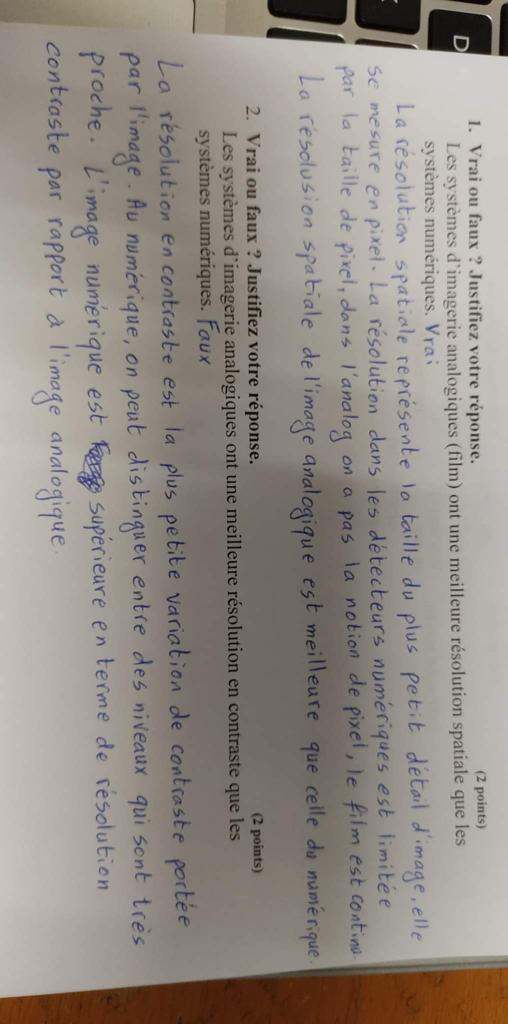 D
1. Vrai ou faux ? Justifiez votre réponse. (2 points)
Les systèmes d'imagerie analogiques (film) ont une meilleure résolution spatiale que les
systèmes numériques. Vrai
La résolution spatiale représente la taille du plus petit détail d'image, elle
se mesure en pixel. La résolution dans les détecteurs numériques est limitée
par la taille de pixel, dans l'analog on a pas la notion de pixel, le film est continu.
La résolusion spatiale de l'image analogique est meilleure que celle du numérique.
2. Vrai ou faux ? Justifiez votre réponse. (2 points)
Les systèmes d'imagerie analogiques ont une meilleure résolution en contraste que les
systèmes numériques. Faux
La résolution en contraste est la plus petite variation de contraste portée
par l'image. Au numérique, on peut distinguer entre des niveaux qui sont très
proche. L'image numérique est supérieure en terme de résolution
contraste par rapport à l'image analogique.